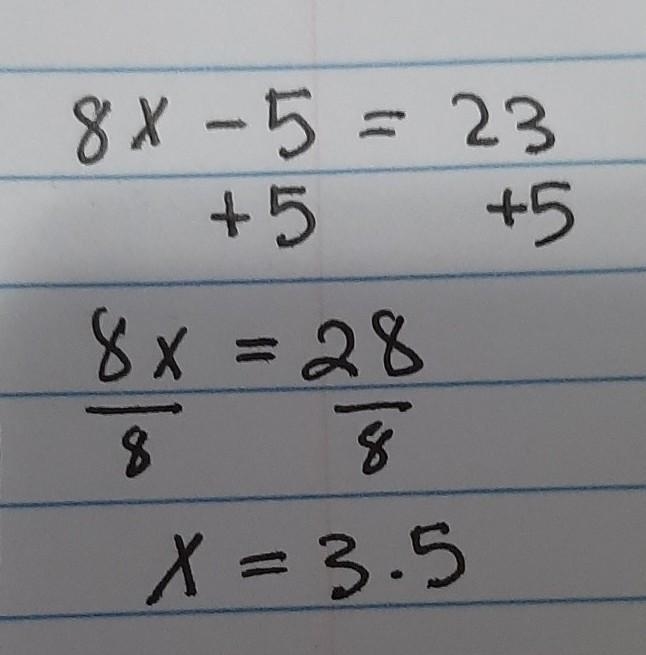 8x - 5 = 23
+5 +5
8x = 28
8 8
x = 3.5